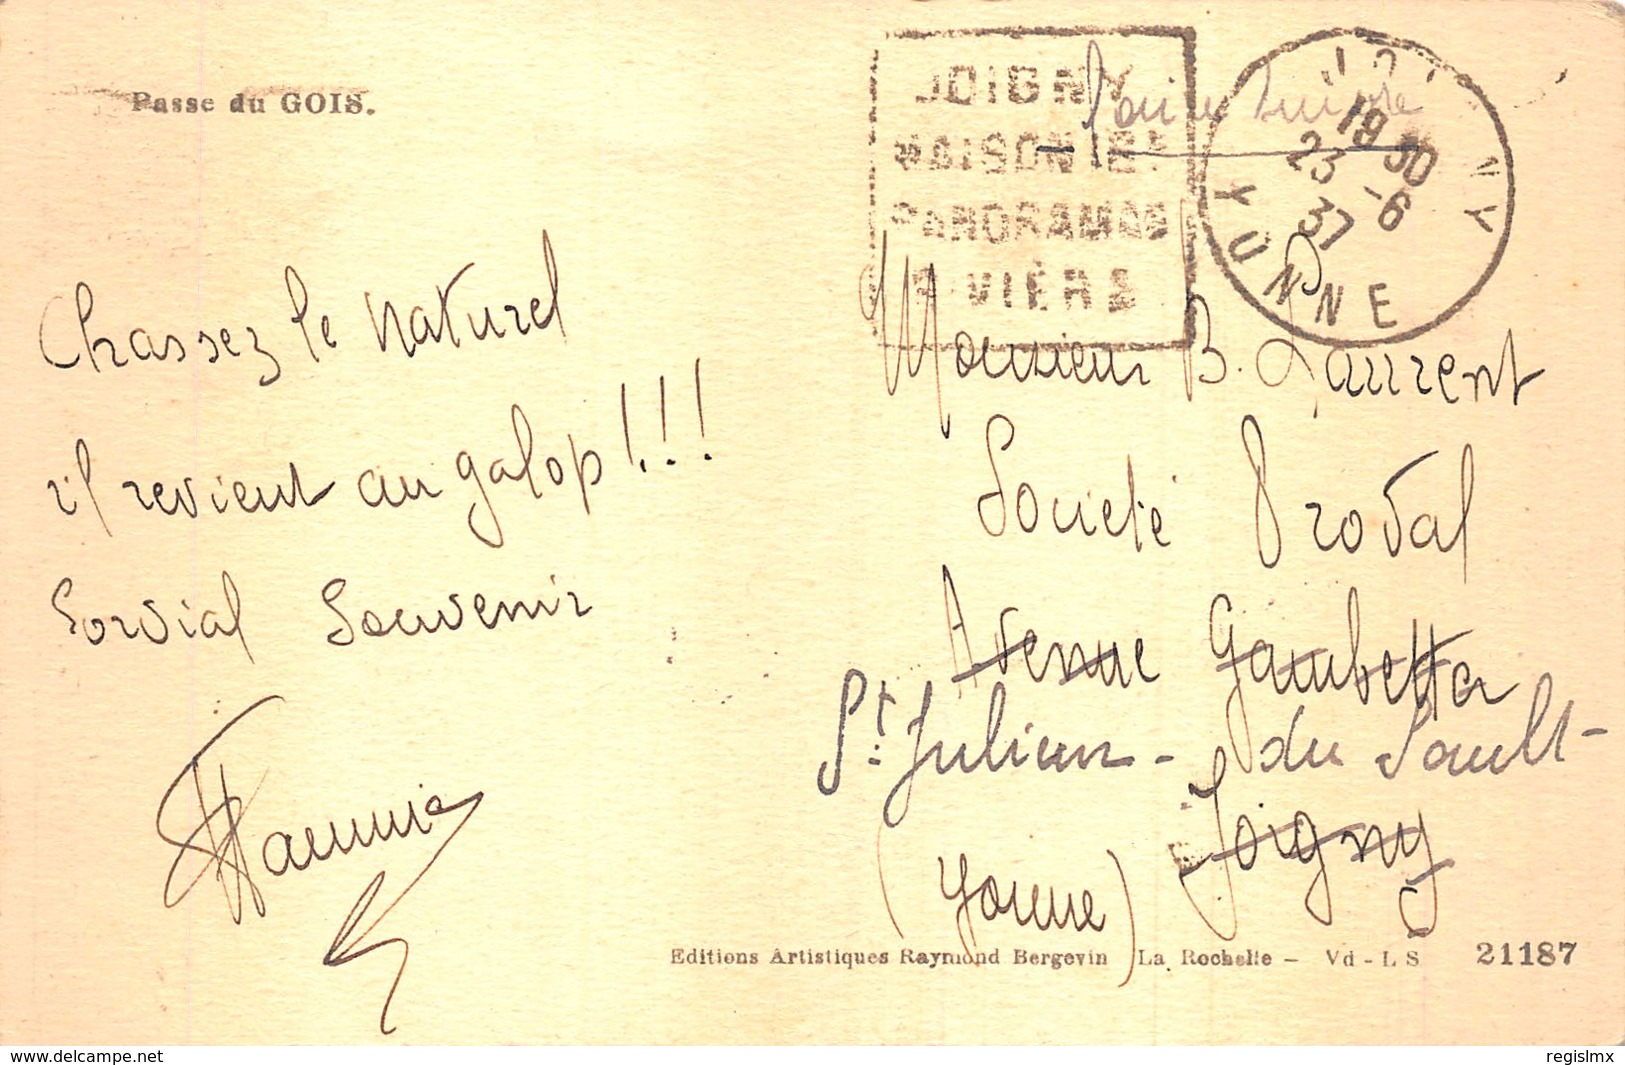 Passe du GOIS.
JOIGNY
PANORAMAS
RIVIÈRE
Faire suivre
19 30
23 -6
37
YONNE
Chassez le naturel
il revient au galop!!!
Cordial Souvenir
Monsieur B. Laurent
Société Prodal
Avenue Gambetta
St. Julien - du Sault -
Joigny
(Yonne)
Editions Artistiques Raymond Bergevin La Rochelle - Vd - L S 21187
delcampe.net
regislmx